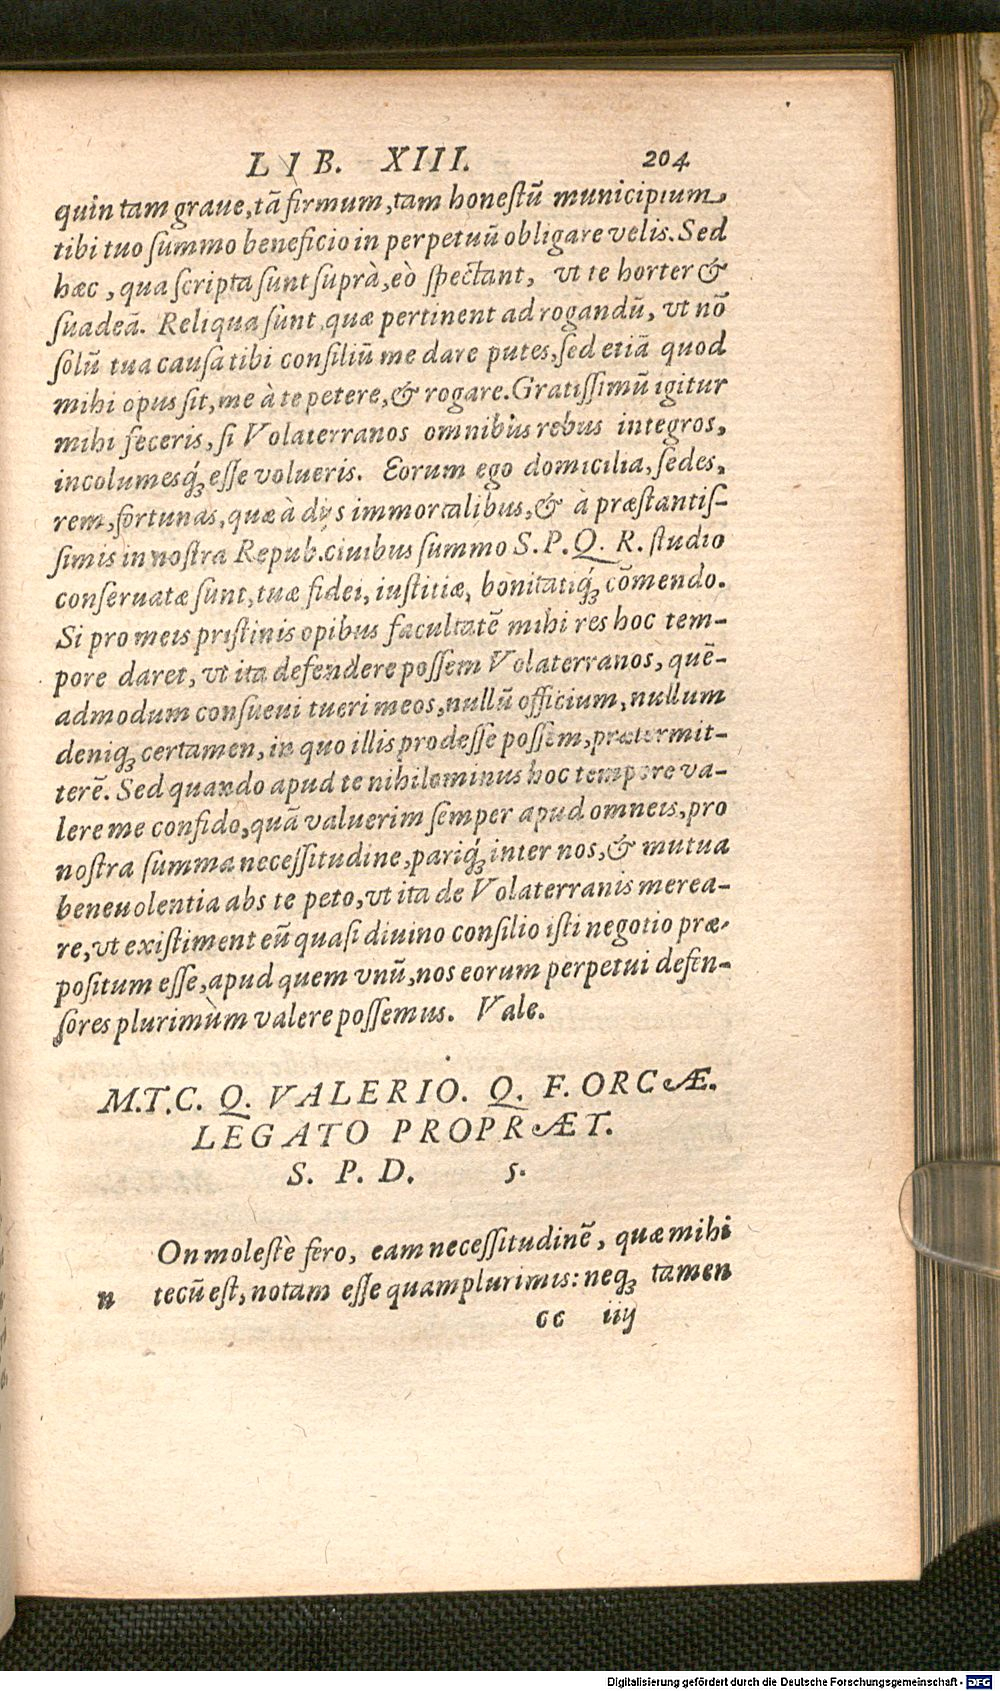 LIB. XIII. 204
quin tam graue, tã firmum, tam honeſtũ municipium,
tibi tuo ſummo beneficio in perpetuũ obligare velis. Sed
hæc, qua ſcripta ſunt ſuprà, eò ſpectant, vt te horter &
ſuadeã. Reliqua ſunt quæ pertinent ad rogandũ, vt nõ
ſolũ tua cauſa tibi conſiliũ me dare putes, ſed etiã quod
mihi opus ſit, me à te petere, & rogare. Gratiſſimũ igitur
mihi feceris, ſi Volaterranos omnibus rebus integros,
incolumesq́; eſſe volueris. Eorum ego domicilia, ſedes,
rem, fortunas, quæ à dijs immortalibus, & à præſtantiſ-
ſimis in noſtra Repub. ciuibus ſummo S. P. Q. R. ſtudio
conſeruatæ ſunt, tuæ fidei, iuſtitiæ, bonitatiq́; cõmendo.
Si pro meis priſtinis opibus facultatẽ mihi res hoc tem-
pore daret, vt ita defendere poſſem Volaterranos, quẽ-
admodum conſueui tueri meos, nullũ officium, nullum
deniq; certamen, in quo illis prodeſſe poſſem, prætermit-
terẽ. Sed quando apud te nihilominus hoc tempore va-
lere me confido, quã valuerim ſemper apud omneis, pro
noſtra ſumma neceſſitudine, pariq́; inter nos, & mutua
beneuolentia abs te peto, vt ita de Volaterranis merea-
re, vt exiſtiment eũ quaſi diuino conſilio iſti negotio præ-
poſitum eſſe, apud quem vnũ, nos eorum perpetui defen-
ſores plurimùm valere poſſemus. Vale.
M.T.C. Q. VALERIO. Q. F. ORCÆ.
LEGATO PROPRÆT.
S. P. D. 5.
On moleſtè fero, eam neceſſitudinẽ, quæ mihi
n tecũ eſt, notam eſſe quamplurimis: neq; tamen
cc iiij
Digitalisierung gefördert durch die Deutsche Forschungsgemeinschaft - DFG